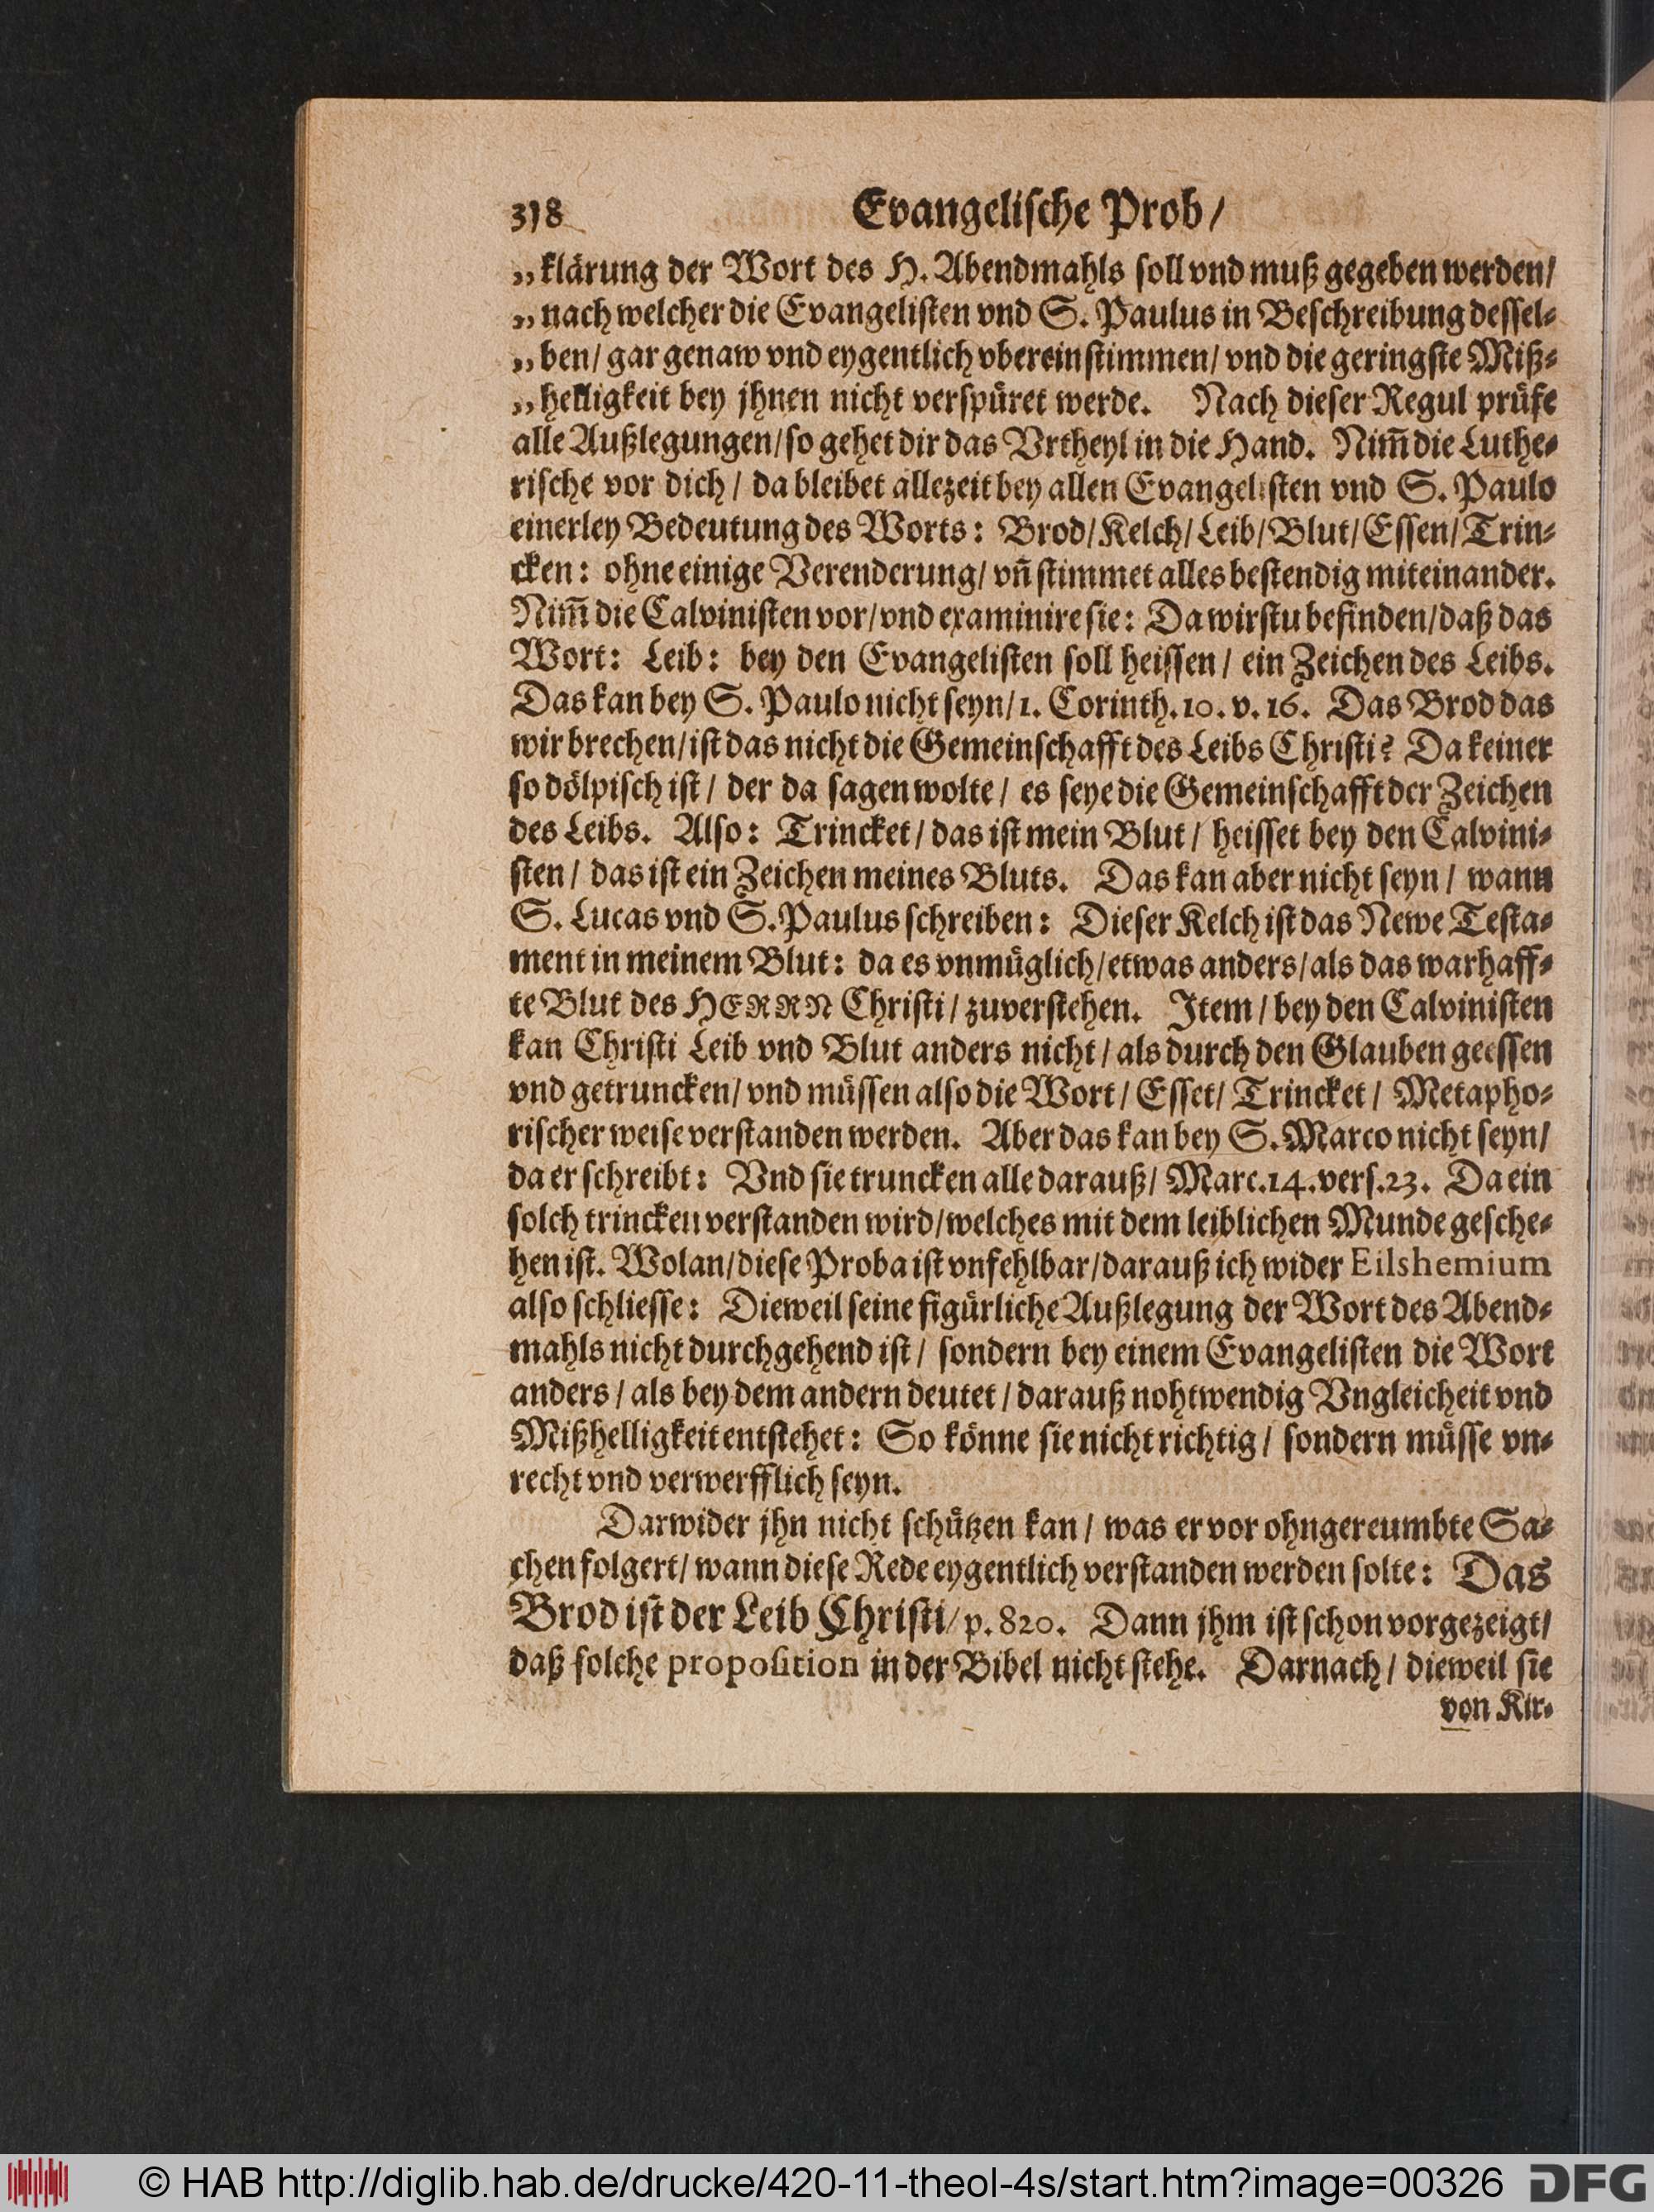 318 Evangelische Prob/
„klärung der Wort des H. Abendmahls soll vnd muß gegeben werden/
„nach welcher die Evangelisten vnd S. Paulus in Beschreibung dessel-
„ben/ gar genaw vnd eygentlich vbereinstimmen/ vnd die geringste Miß-
„helligkeit bey jhnen nicht verspüret werde. Nach dieser Regul prüfe
alle Außlegungen/ so gehet dir das Vrtheyl in die Hand. Nim̄ die Luthe-
rische vor dich/ da bleibet allezeit bey allen Evangelisten vnd S. Paulo
einerley Bedeutung des Worts: Brod/ Kelch/ Leib/ Blut/ Essen/ Trin-
cken: ohne einige Verenderung/ vn̄ stimmet alles bestendig miteinander.
Nim̄ die Calvinisten vor/ vnd examinire sie: Da wirstu befinden/ daß das
Wort: Leib: bey den Evangelisten soll heissen/ ein Zeichen des Leibs.
Das kan bey S. Paulo nicht seyn/ 1. Corinth. 10. v. 16. Das Brod das
wir brechen/ ist das nicht die Gemeinschafft des Leibs Christi? Da keiner
so dölpisch ist/ der da sagen wolte/ es seye die Gemeinschafft der Zeichen
des Leibs. Also: Trincket/ das ist mein Blut/ heisset bey den Calvini-
sten/ das ist ein Zeichen meines Bluts. Das kan aber nicht seyn/ wann
S. Lucas vnd S. Paulus schreiben: Dieser Kelch ist das Newe Testa-
ment in meinem Blut: da es vnmüglich/ etwas anders/ als das warhaff-
te Blut des HERRN Christi/ zuverstehen. Item/ bey den Calvinisten
kan Christi Leib vnd Blut anders nicht/ als durch den Glauben geessen
vnd getruncken/ vnd müssen also die Wort/ Esset/ Trincket/ Metapho-
rischer weise verstanden werden. Aber das kan bey S. Marco nicht seyn/
da er schreibt: Vnd sie truncken alle darauß/ Marc. 14. vers. 23. Da ein
solch trincken verstanden wird/ welches mit dem leiblichen Munde gesche-
hen ist. Wolan/ diese Proba ist vnfehlbar/ darauß ich wider Eilshemium
also schliesse: Dieweil seine figürliche Außlegung der Wort des Abend-
mahls nicht durchgehend ist/ sondern bey einem Evangelisten die Wort
anders/ als bey dem andern deutet/ darauß nohtwendig Vngleicheit vnd
Mißhelligkeit entstehet: So könne sie nicht richtig/ sondern müsse vn-
recht vnd verwerfflich seyn.
Darwider jhn nicht schützen kan/ was er vor ohngereumbte Sa-
chen folgert/ wann diese Rede eygentlich verstanden werden solte: Das
Brod ist der Leib Christi/ p. 820. Dann jhm ist schon vorgezeigt/
daß solche proposition in der Bibel nicht stehe. Darnach/ dieweil sie
von Kir-
© HAB http://diglib.hab.de/drucke/420-11-theol-4s/start.htm?image=00326 DFG